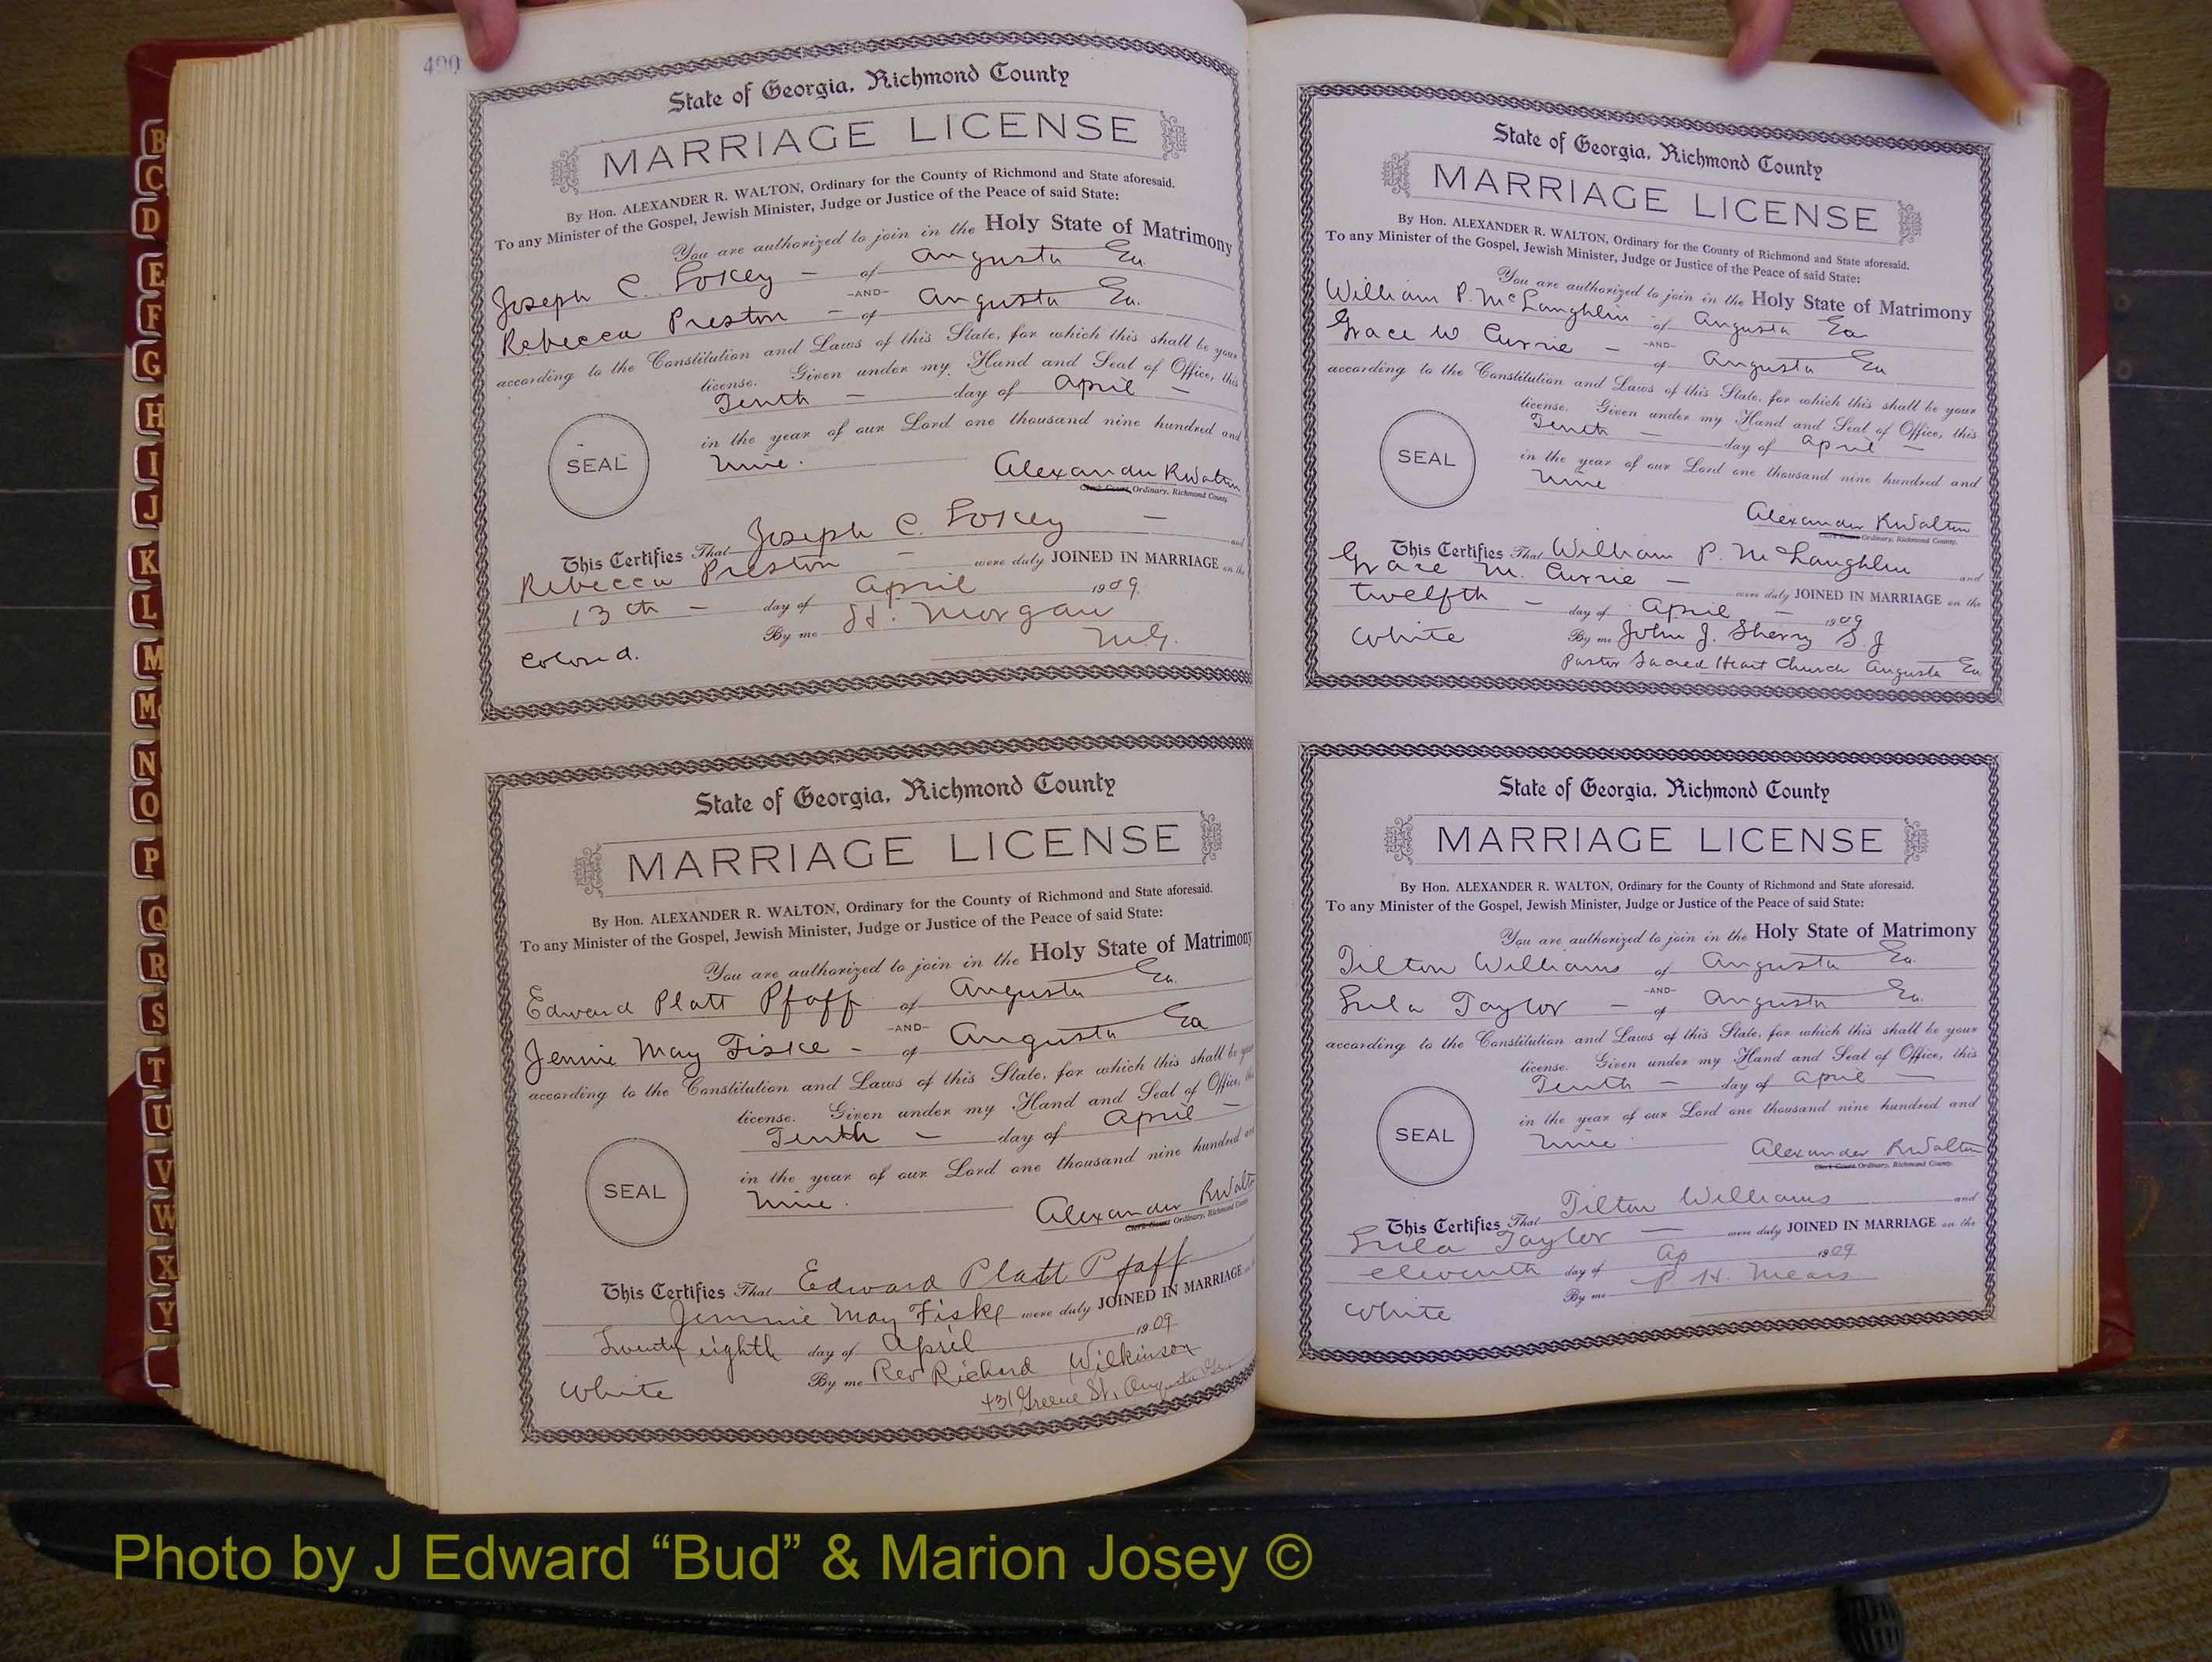 B
C
D
E
F
G
H
I
J
K
L
M
Mc
N
O
P
Q
R
S
T
U
V
W
X
Y
400
State of Georgia, Richmond County
MARRIAGE LICENSE
By Hon. ALEXANDER R. WALTON, Ordinary for the County of Richmond and State aforesaid.
To any Minister of the Gospel, Jewish Minister, Judge or Justice of the Peace of said State:
You are authorized to join in the Holy State of Matrimony
Joseph C. Lokey - of Augusta Ga
-AND-
Rebecca Preston - of Augusta Ga.
according to the Constitution and Laws of this State, for which this shall be your
license. Given under my Hand and Seal of Office, this
Tenth - day of April -
in the year of our Lord one thousand nine hundred and
SEAL
Nine.
Alexander R Walton
Clerk Court, Ordinary, Richmond County.
This Certifies That Joseph C. Lokey - and
Rebecca Preston - were duly JOINED IN MARRIAGE on the
13th - day of April 1909
By me H. Morgan
Colored. M.G.
State of Georgia, Richmond County
MARRIAGE LICENSE
By Hon. ALEXANDER R. WALTON, Ordinary for the County of Richmond and State aforesaid.
To any Minister of the Gospel, Jewish Minister, Judge or Justice of the Peace of said State:
You are authorized to join in the Holy State of Matrimony
Edward Platt Pfaff of Augusta Ga.
-AND-
Jennie May Fiske - of Augusta Ga
according to the Constitution and Laws of this State, for which this shall be your
license. Given under my Hand and Seal of Office, this
Tenth - day of April -
in the year of our Lord one thousand nine hundred and
SEAL
Nine.
Alexander R Walton
Clerk Court Ordinary, Richmond County
This Certifies That Edward Platt Pfaff
Jennie May Fiske were duly JOINED IN MARRIAGE
Twenty eighth day of April 1909
By me Rev Richard Wilkinson
White 431 Greene St, Augusta Ga.
State of Georgia, Richmond County
MARRIAGE LICENSE
By Hon. ALEXANDER R. WALTON, Ordinary for the County of Richmond and State aforesaid.
To any Minister of the Gospel, Jewish Minister, Judge or Justice of the Peace of said State:
You are authorized to join in the Holy State of Matrimony
William P. McLaughlin of Augusta Ga
-AND-
Grace W Currie - of Augusta Ga
according to the Constitution and Laws of this State, for which this shall be your
license. Given under my Hand and Seal of Office, this
Tenth - day of April -
in the year of our Lord one thousand nine hundred and
SEAL
Nine
Alexander R Walton
Clerk Court Ordinary, Richmond County.
This Certifies That William P. McLaughlin and
Grace M. Currie - were duly JOINED IN MARRIAGE on the
twelfth - day of April - 1909
White By me John J. Sherry S.J
Pastor Sacred Heart Church Augusta Ga
State of Georgia, Richmond County
MARRIAGE LICENSE
By Hon. ALEXANDER R. WALTON, Ordinary for the County of Richmond and State aforesaid.
To any Minister of the Gospel, Jewish Minister, Judge or Justice of the Peace of said State:
You are authorized to join in the Holy State of Matrimony
Tilton Williams of Augusta Ga.
-AND-
Lula Taylor - of Augusta Ga.
according to the Constitution and Laws of this State, for which this shall be your
license. Given under my Hand and Seal of Office, this
Tenth - day of April -
in the year of our Lord one thousand nine hundred and
SEAL
Nine.
Alexander R Walton
Clerk Court Ordinary, Richmond County.
This Certifies That Tilton Williams and
Lula Taylor - were duly JOINED IN MARRIAGE on the
eleventh day of Ap 1909
By me P. H. Mears
White
Photo by J Edward “Bud” & Marion Josey ©